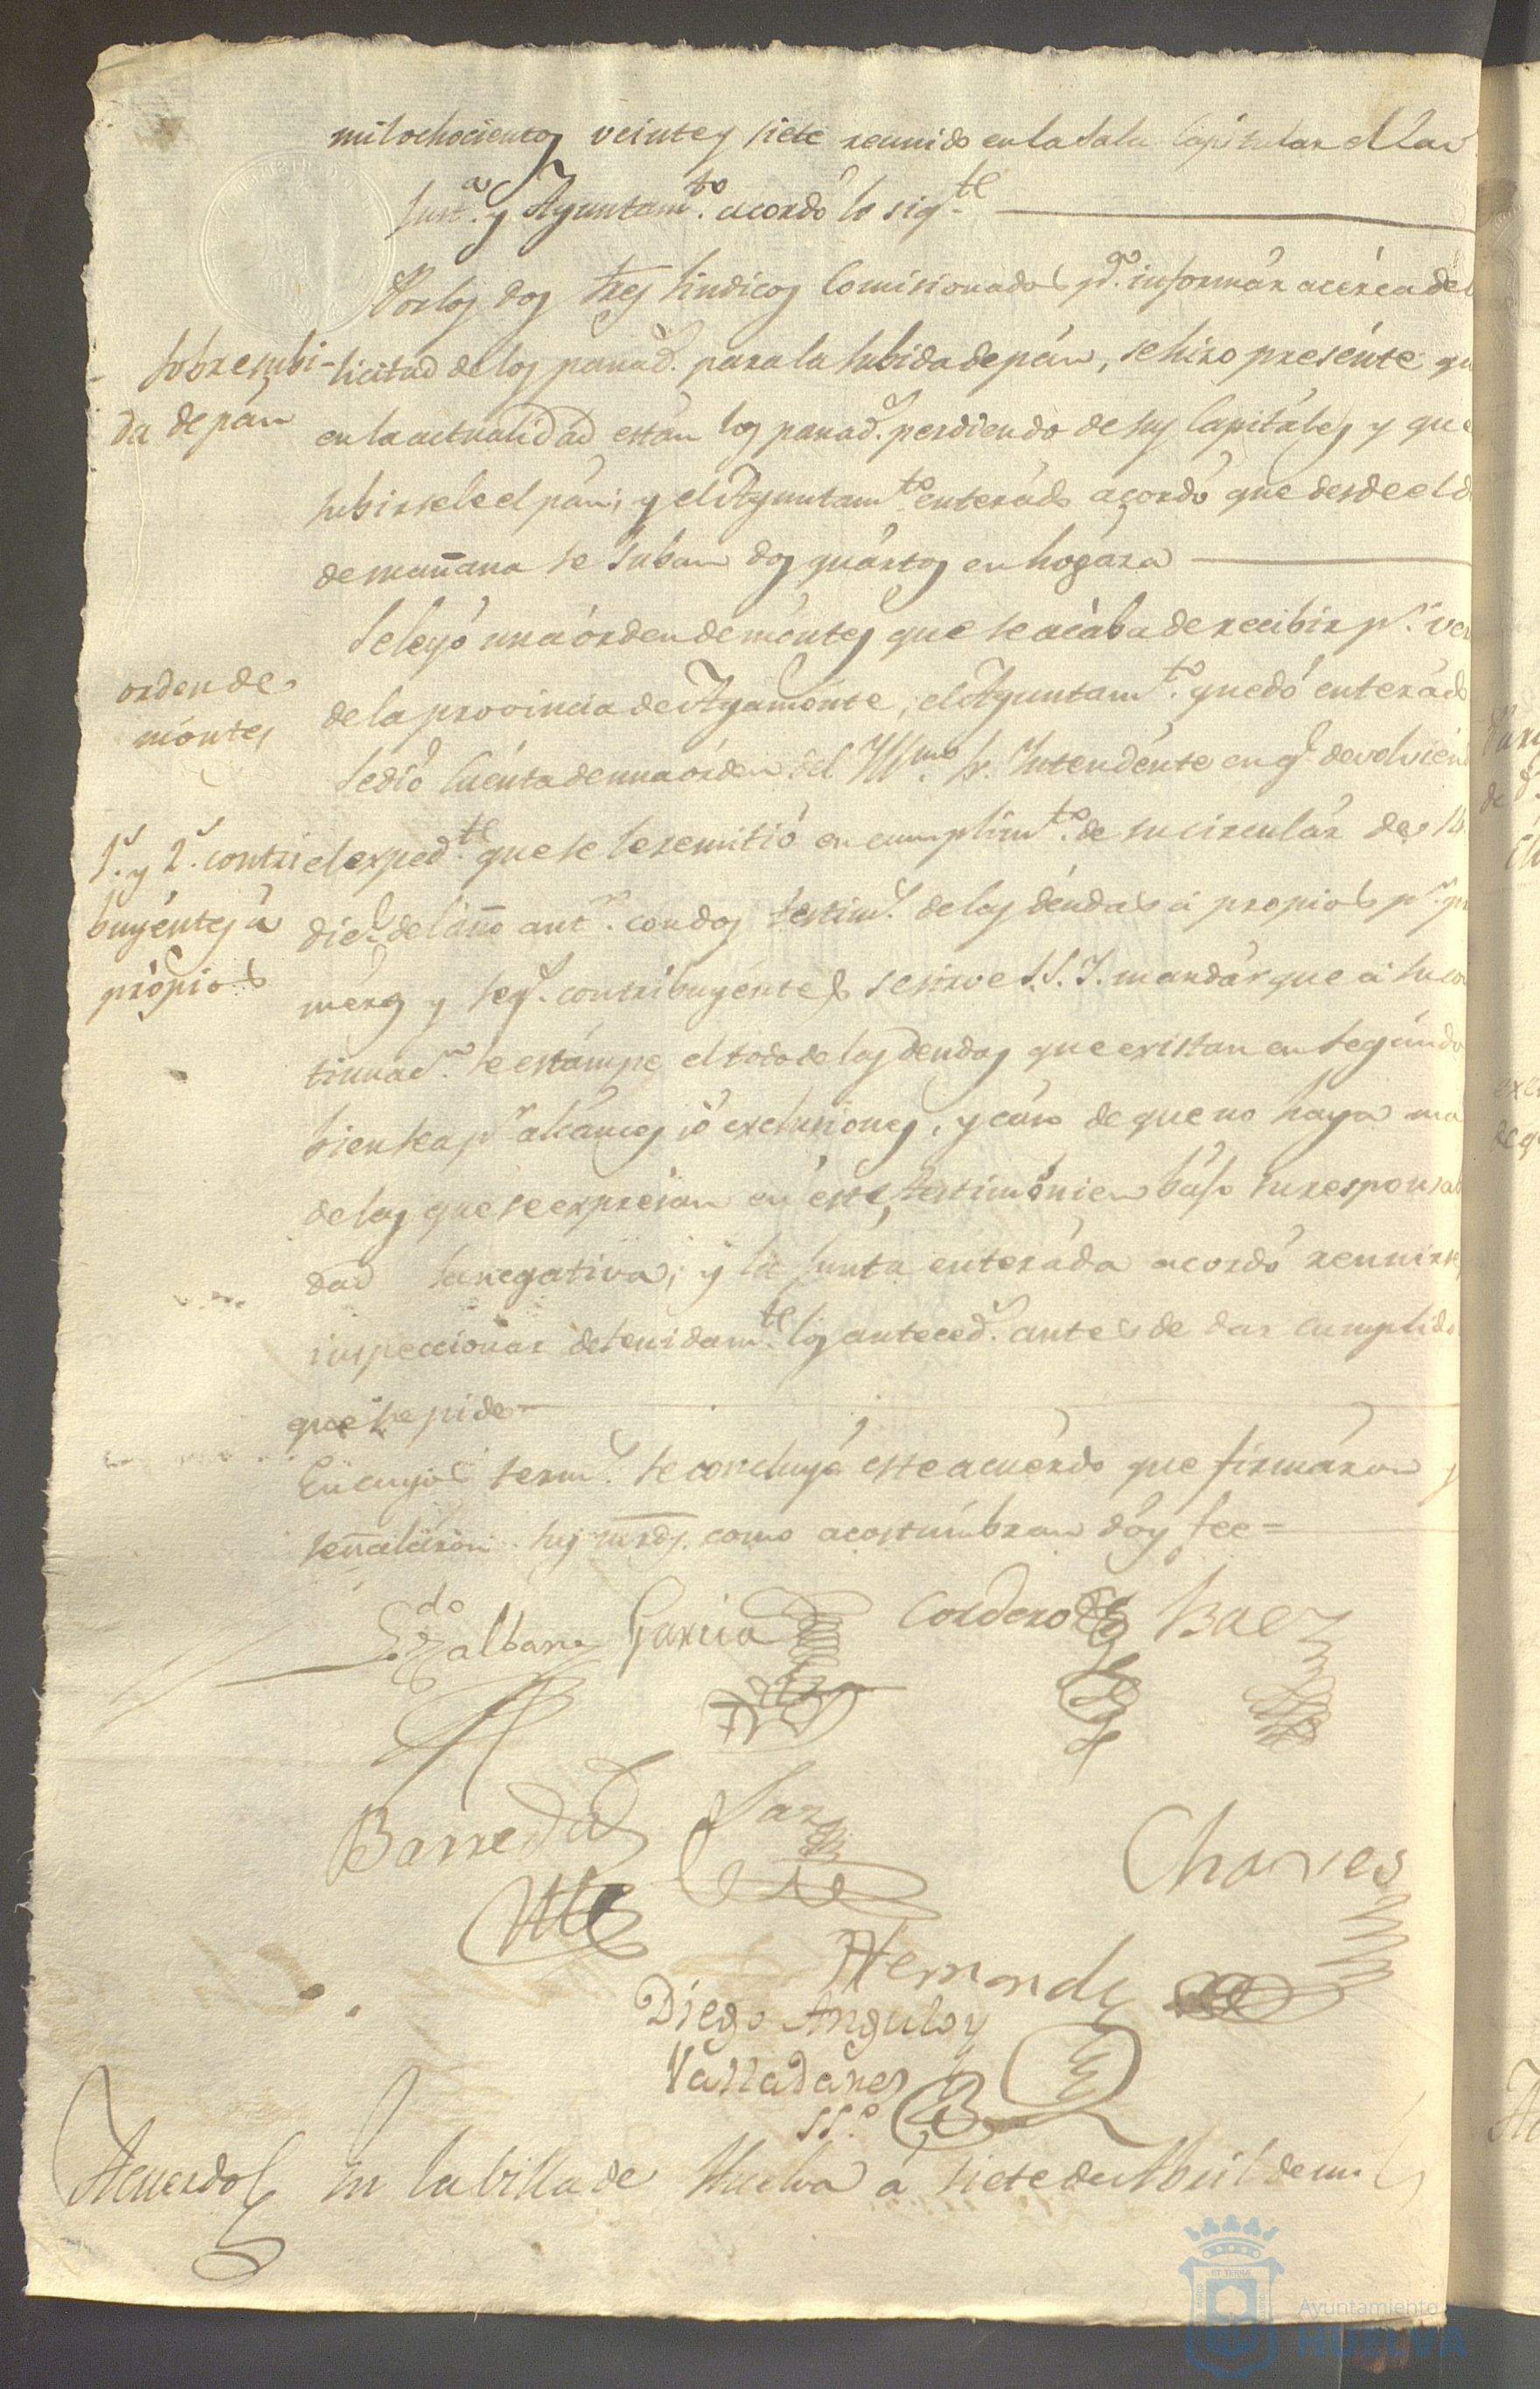 mil ochocientos veinte y siete reunido en la Sala Capitular el Sor
Just.ª y Ayuntam.to acordó lo sig.te
Por los dos Sres Sindicos Comisionados p.ª informár acérca de
sobre subi-
da de pán
licitud de los panad.s para la subida de pán, se hizo presénte qu
en la actualidád están los panad.s perdiendo de sus Capitáles y que
subirsele el pán; y el Ayuntam.to enterádo acordó que desde el d
de mañana se suban dos quártos en hogáza
Se leyó una órden de móntes que se acába de recibir p.r ver
orden de
móntes
de la provincia de Ayamonte; el Ayuntam.to quedó enterádo
Se dió cuénta de una órden del Yllmo Sr. Intendénte en gl. devolvién
1.s y 2.s contri
buyéntes á
própios
el exped.te que se le remitió en cumplim.to de su circulár de 14
dic.e del año ant.r con dos testim.s de las déudas á propios p.r pri
méros y seg.s contribuyéntes se sirve S.S.I. mandár que á su con
tinuac.n se estámpe el todo de las deudas que existan en segúndo
bien sea p.r alcánces ó exclusiones, y cáso de que no haya ma
de las que se exprésan en éste testimónien bájo su responsa
dad la negativa; y la Junta enteráda acordó reunirse
inspeccionar detenidam.te los anteced.s antes de dar cumplido
que se pide
En cuyos term.s se concluyó este acuérdo que firmáron y
señaláron sus mrds. como acostúmbran dóy fee=
L.do
Garcia
Cordero
Baez
Barreda
Saz
Chaves
Hernandz
Diego Angulo y
Valladares
SS.º
Acuerdo
En la Villa de Huelva á siete de Abril de mil
Ayuntamiento de
HUELVA